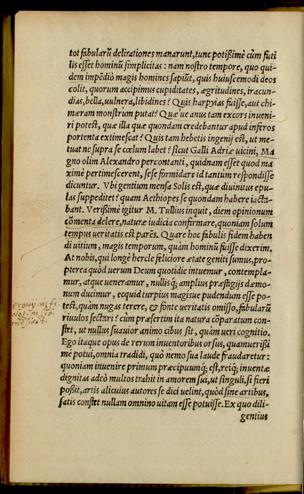 tot fabularū delirationes manarunt, tunc potißimè cùm futi
lis esset hominū simplicitas: nam nostro tempore, quo qui-
dem impēdiò magis homines sapiūt, quis huiuscemodi deos
colit, quorum accipimus cupiditates, ægritudines, iracun-
dias, bella, uulnera, libidines? Quis harpyias fuisse, aut chi-
mæram monstrum putat? Quæ ue anus tam excors inueni-
ri potest, quæ illa quæ quondam credebantur apud inferos
portenta extimescat? Quis tam hebetis ingenij est, ut me-
tuat ne supra se cœlum labet? sicut Galli Adriæ uicini, Ma
gno olim Alexandro percontanti, quidnam esset quod ma
ximè pertimescerent, se se formidare id tantum respondisse
dicuntur. Vbi gentium mensa Solis est, quæ diuinitus epu-
las suppeditet? quam Aethiopes se quondam habere iacta-
bant. Verißimè igitur M. Tullius inquit, diem opinionum
cōmenta delere, naturæ iudicia confirmare, quoniam solum
tempus ueritatis est parēs. Quare hoc fabulis fidem haben
di uitium, magis temporum, quàm hominū fuisse dixerim.
At nobis, qui longè hercle feliciore ætate geniti sumus, pro-
pterea quòd uerum Deum quotidie intuemur, contempla-
mur, atque ueneramur, nullisq́; amplius præstigijs dæmo-
num ducimur, ecquid turpius magisue pudendum esse po-
test, quàm nugas terere, & fonte ueritatis omisso, fabularū
riuulos sectari? cùm præsertim ita natura cōparatum con-
stet, ut nullus suauior animo cibus sit, quàm ueri cognitio.
Ego itaque opus de rerum inuentoribus orsus, quamuerißi
mè potui, omnia tradidi, quò nemo sua laude fraudaretur:
quoniam inuenire primum præcipuumq́; est, reiq́; inuentæ
dignitas adeò multos trahit in amorem sui, ut singuli, si fieri
poßit, artis alicuius autores se dici uelint, quòd sine artibus,
satis constet nullam omnino uitam esse potuisse. Ex quo dili-
gentius